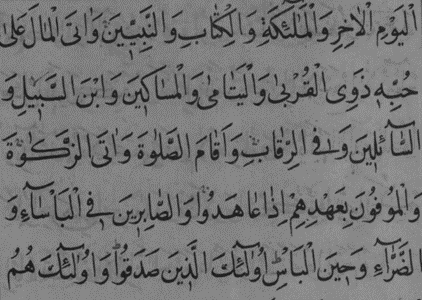 الْيَوْمِ الْاٰخِرِ وَالْمَلٰٓئِكَةِ وَالْكِتَابِ وَالنَّبِيّٖنَ وَاٰتَى الْمَالَ عَلٰى
حُبِّهٖ ذَوِى الْقُرْبٰى وَالْيَتَامٰى وَالْمَسَاكٖينَ وَابْنَ السَّبٖيلِ وَ
السَّآئِلٖينَ وَفِى الرِّقَابِ وَاَقَامَ الصَّلٰوةَ وَاٰتَى الزَّكٰوةَ
وَالْمُوفُونَ بِعَهْدِهِمْ اِذَا عَاهَدُوا وَالصَّابِرٖينَ فِى الْبَاْسَآءِ وَ
الضَّرَّآءِ وَحٖينَ الْبَاْسِ اُولٰٓئِكَ الَّذٖينَ صَدَقُوا وَاُولٰٓئِكَ هُمُ